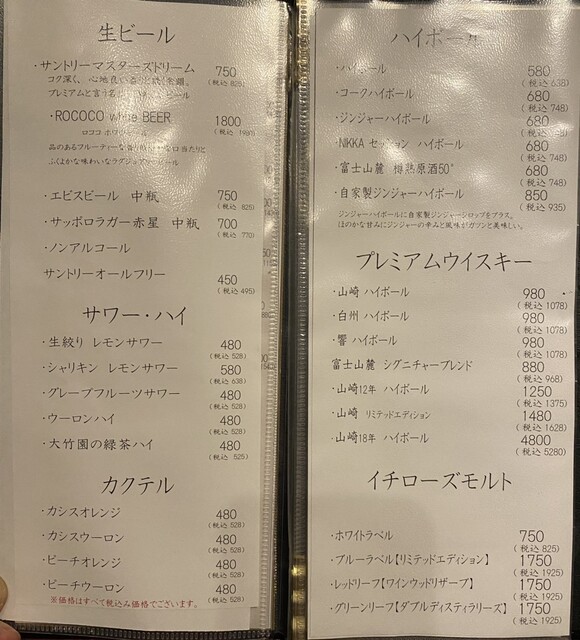 生ビール
・サントリーマスターズドリーム 750
(税込 825)
コク深く、心地良い
プレミアムと言う名 ビール
・ROCOCO white BEER 1800
(税込 1980)
ロココ ホワイト
品のあるフルーティーな香り 口当たりと
ふくよかな味わいなラグジュアリービール
・エビスビール 中瓶 750
(税込 825)
・サッポロラガー赤星 中瓶 700
(税込 770)
・ノンアルコール
サントリーオールフリー 450
(税込 495)
サワー・ハイ
・生絞り レモンサワー 480
(税込 528)
・シャリキン レモンサワー 580
(税込 638)
・グレープフルーツサワー 480
(税込 528)
・ウーロンハイ 480
(税込 528)
・大竹園の緑茶ハイ 480
(税込 525)
カクテル
・カシスオレンジ 480
(税込 528)
・カシスウーロン 480
(税込 528)
・ピーチオレンジ 480
(税込 528)
・ピーチウーロン 480
(税込 528)
※価格はすべて税込み価格でございます。
ハイボール
・ハイボール 580
(税込 638)
・コークハイボール 680
(税込 748)
・ジンジャーハイボール 680
・NIKKA セッション ハイボール 680
(税込 748)
・富士山麓 樽熟原酒50° 680
(税込 748)
・自家製ジンジャーハイボール 850
(税込 935)
ジンジャーハイボールに自家製ジンジャーシロップをプラス。
ほのかな甘みにジンジャーの辛みと風味がガツンと美味しい。
プレミアムウイスキー
・山崎 ハイボール 980
(税込 1078)
・白州 ハイボール 980
(税込 1078)
・響 ハイボール 980
(税込 1078)
富士山麓 シグニチャーブレンド 880
(税込 968)
・山崎12年 ハイボール 1250
(税込 1375)
・山崎 リミテッドエディション 1480
(税込 1628)
・山崎18年 ハイボール 4800
(税込 5280)
イチローズモルト
・ホワイトラベル 750
(税込 825)
・ブルーラベル【リミテッドエディション】 1750
(税込 1925)
・レッドリーフ【ワインウッドリザーブ】 1750
(税込 1925)
・グリーンリーフ【ダブルディスティラリーズ】 1750
(税込 1925)